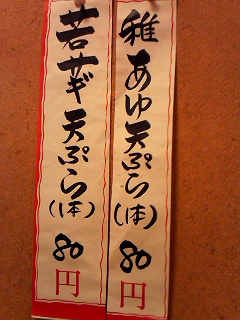 稚あゆ天ぷら(1本)80円
若サギ天ぷら(1本)80円